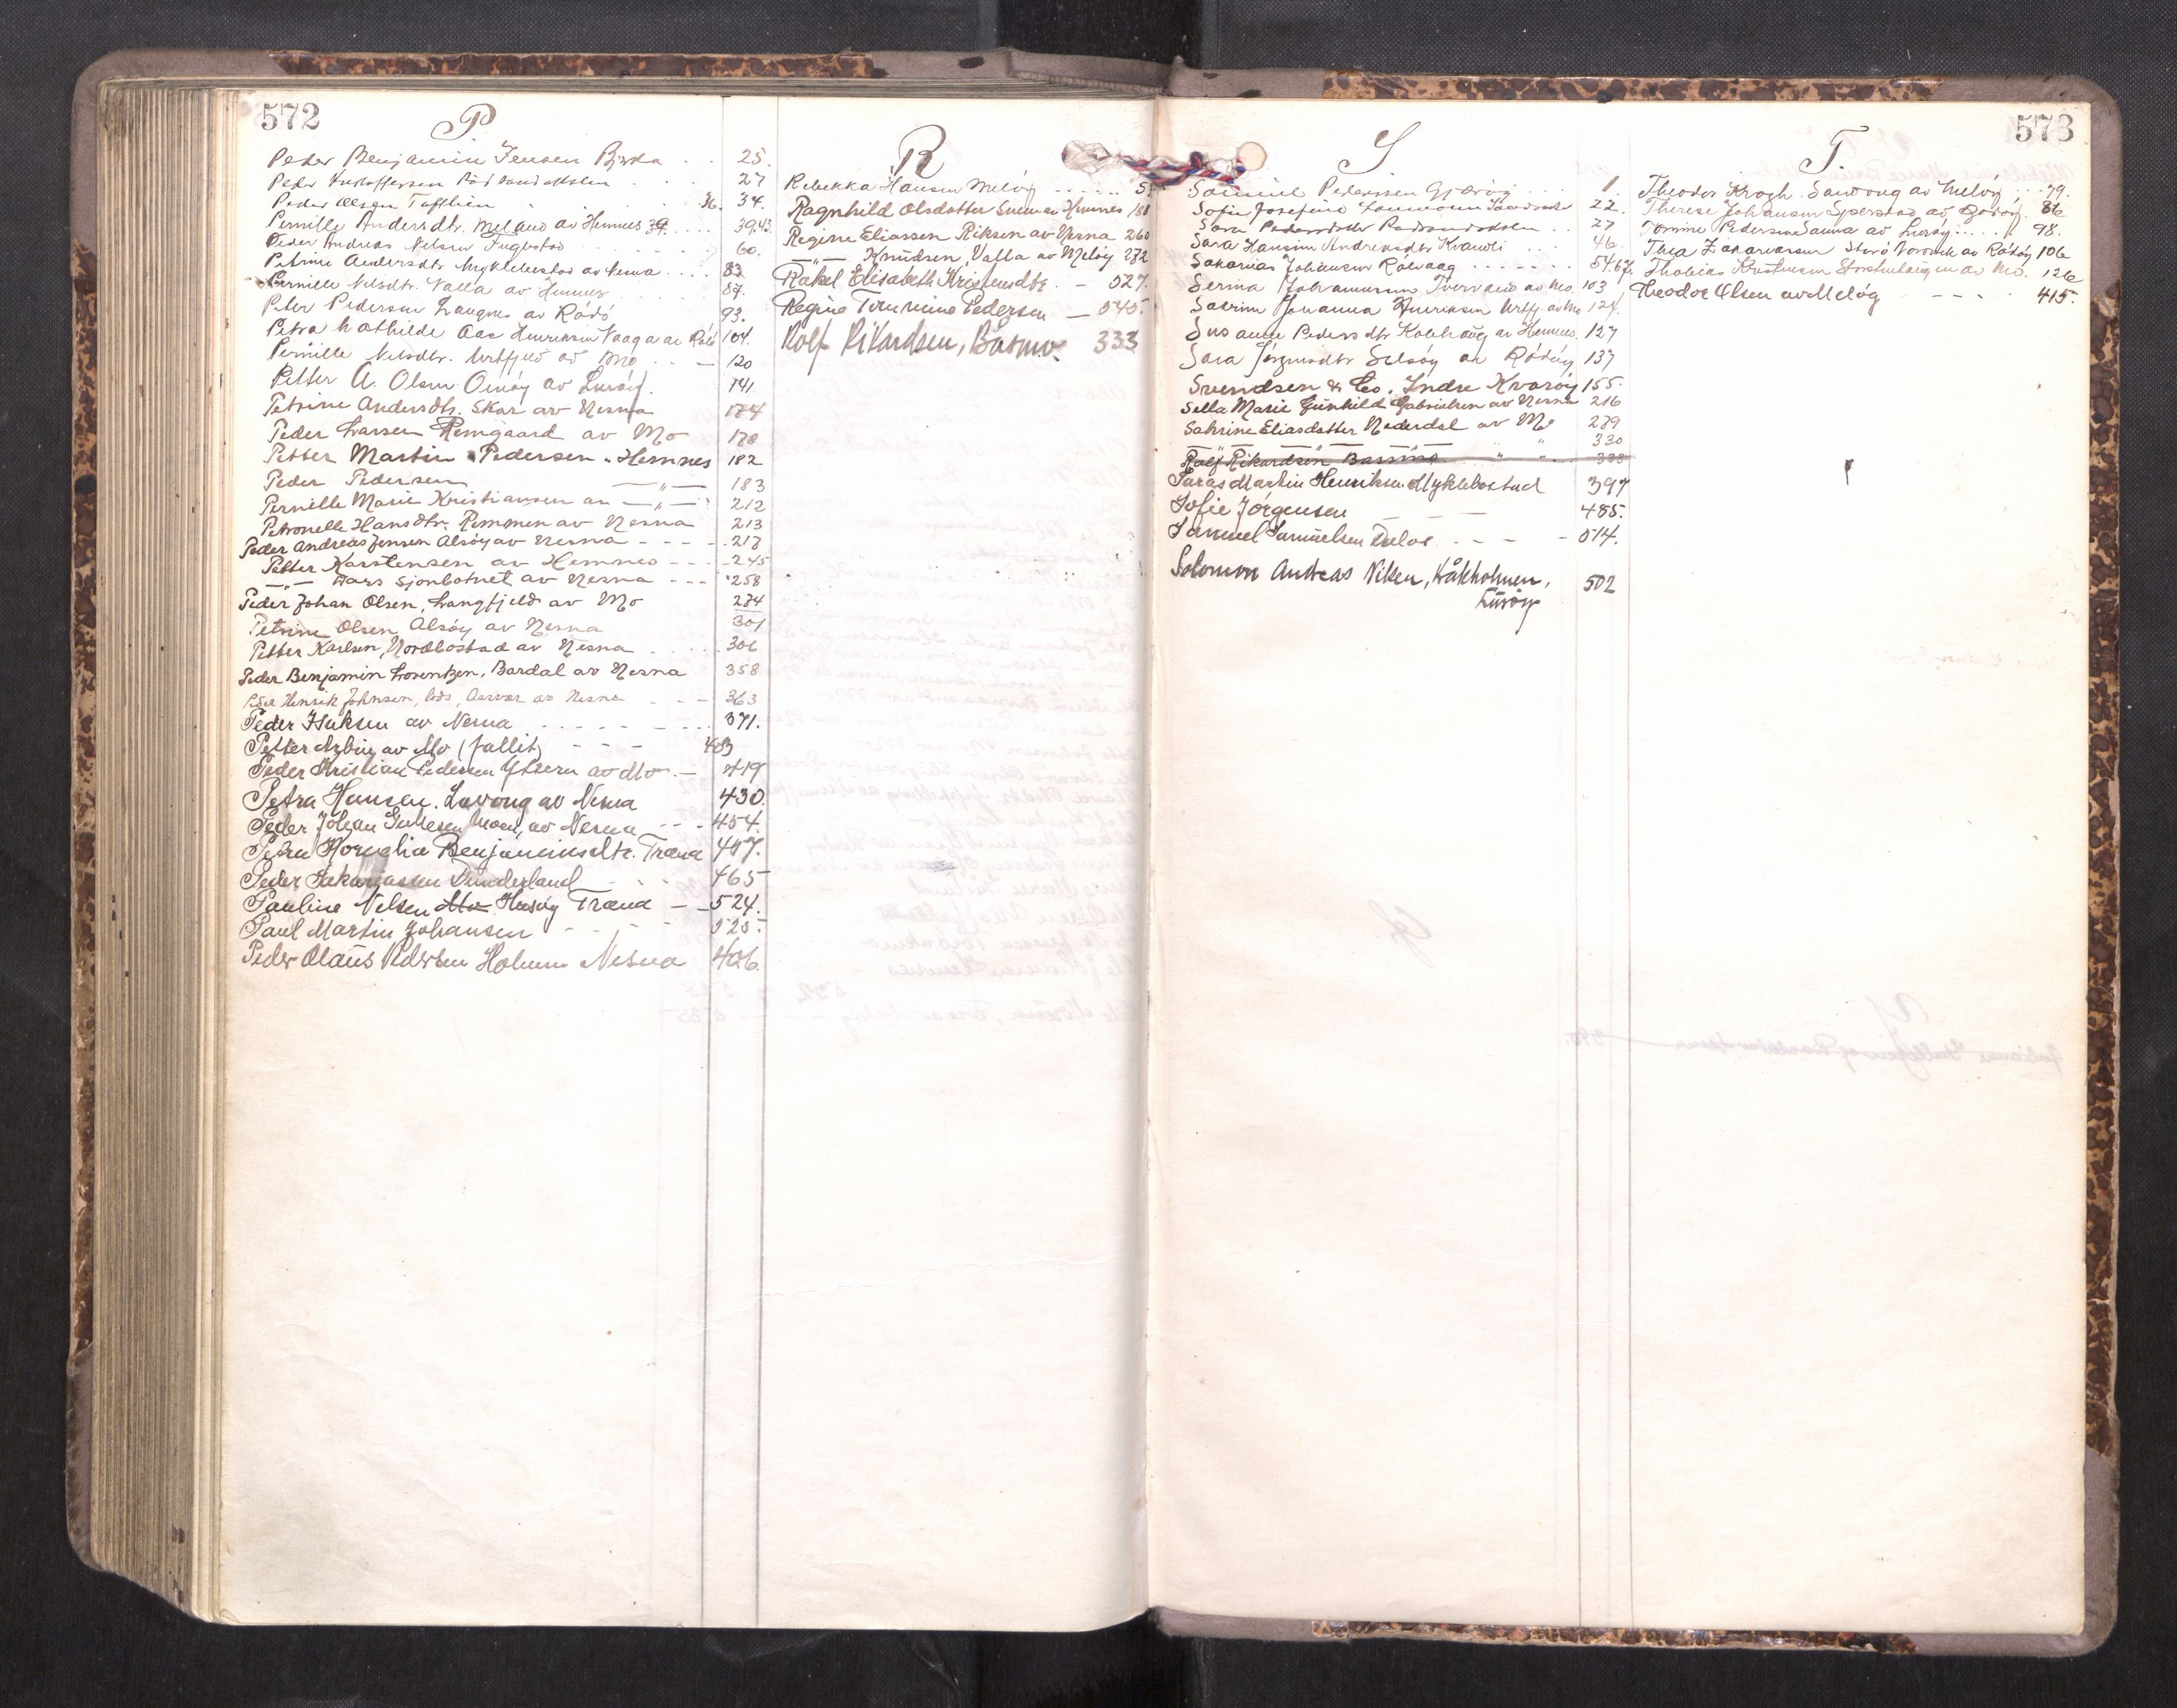 572
P
Peder Benjamin Jensen Bjerka . . 25.
Peder Kristoffersen 27
Peder Olsen 36. 34.
Pernille Andersdtr. Meland av Hemnes 39. . . . 39.43.
Peder Andreas Nelsen Fuglestad 60.
Petrine Andersdtr Myklebustad av Nesna . . . . 83.
Pernille Nilsdtr. Valla av Hemnes 87.
Peter Pedersen Langnes av Rödö 93.
Petra Mathilde Aas Henriksen Vaaga av Rödö 104.
Pernille Nilsdtr. Urtfjeld av Mo . . — 120
Petter A. Olsen Onöy av Luröy. 141
Petrine Andersdtr. Skar av Nesna 174
Peder Larsen Remgaard av Mo 178
Petter Martin Pedersen " Hemnes 182
Peder Pedersen —"— 183
Pernille Marie Kristiansen av —"— 212
Petronelle Hansdtr. Remmen av Nesna 213
Peder Andreas Jensen Alsöy av Nesna - - - - 217
Petter Karstensen av Hemnes - - - 245
—"— Lars Sjonbotnet av Nesna - - - 258
Peder Johan Olsen, Langfjeld av Mo 274
Petrine Olsen, Alsöy av Nesna 301
Petter Karlsen, Nordbostad av Nesna . . . . . 306
Peder Benjamin Lorentzen, Bardal av Nesna 358
Peder Henrik Johnsen, Aasvær av Nesna - - - 363
Peder Isaksen av Nesna . . . - - - . . 371.
Petter av Mo (fallit) - - - 403
Peder Kristian Pedersen Yttern av Mo . — 419
Petra Hansen. Lovong av Nesna 430.
Peder Johan Moen, av Nesna - - - 454.
Petra Hornelia Benjaminsdtr. Træna 457.
Peder Sakariasen Dunderland - - - 465
Pauline Nelsen Mo Husöy Træna — - 524.
Paul Martin Johansen - - - 525.
Peder Olaus Pedersen Holmen Nesna 426.
R
Rebekka Hansen Melöy . . . . . . 5
Ragnhild Olsdatter Hemnes 188
Regine Eliassen Riksen av Nesna 260
—"— Knudsen, Valla av Melöy 272
Rakel Elisabeth Kristensdtr. — 527.
Regine Tommine Pedersen — 545.
Rolf Rikardsen, Båsmo. 333
573
S
Samuel Pedersen Gjæröy . . . 1.
Sofie Josefine 22.
Sara Pedersdtr . . 27
Sara Hansine Andreasdtr Kvandli . . . 46.
Sakarias Johansen Rölvaag - - - - - - 54.67.
Serina Johannesen Tvervand av Mo. 103
Sabrine Johanna Henriksen Urtfj. av Mo 124.
Susanne Pedersdtr Kobhaug av Hemnes. 127
Sara Jörgensdtr Selsöy av Rödöy 137
Svendsen & Co. Indre Kvaröy 155.
Sella Marie Gunhild Gabrielsen av Nesna 216
Sabrine Eliasdatter Nederdal av Mo 279
—"— —"— —"— " " 330
Rolf Rikardsen Basmo " " . 333
Martin Henriksen Myklebostad 397
Sofie Jörgensen — — — 485.
Samuel Samuelsen Delos . - - - - 514.
Solomon Andreas Nilsen, Håkholmen, 502
Luröy
T.
Theodor Krogh. Sandvong av Melöy, . . . 79.
Therese Johansen Sperstad av Rödöy. 86
Tomine Pedersen Sauna av Luröy . . . . . 98.
Thea Zakariassen av Rödöy 106
Thobias Kristensen av Mo. 126
Theodor Olsen av Melöy - - - . 415.